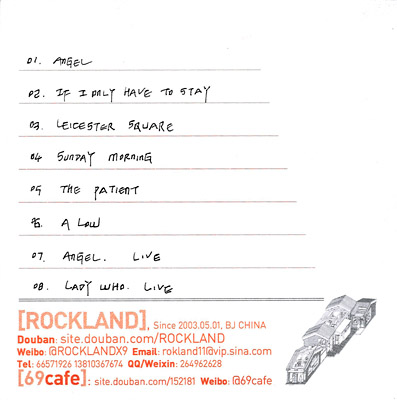 01. ANGEL
02. IF I ONLY HAVE TO STAY
03. LEICESTER SQUARE
04 SUNDAY MORNING
05 THE PATIENT
06. A LOW
07. ANGEL. LIVE
08. LADY WHO. LIVE
[ROCKLAND], Since 2003.05.01, BJ CHINA
Douban: site.douban.com/ROCKLAND
Weibo: @ROCKLANDX9 Email: rokland11@vip.sina.com
Tel: 66571926 13810367674 QQ/Weixin: 264962628
[69cafe]: site.douban.com/152181 Weibo: @69cafe